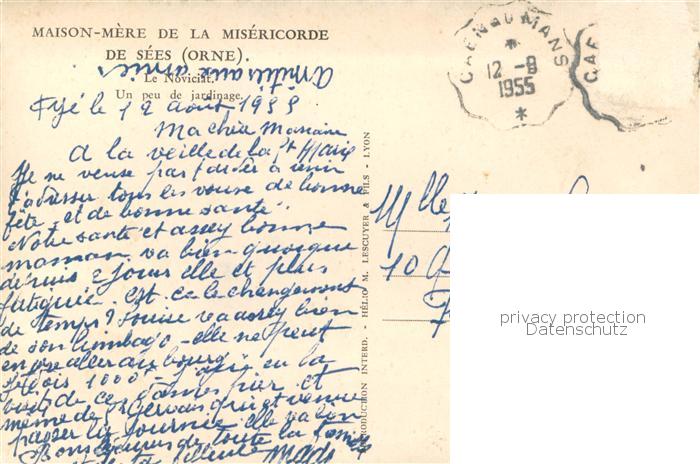 MAISON-MÈRE DE LA MISÉRICORDE
DE SÉES (ORNE).
Le Noviciat.
Un peu de jardinage.
Amitiés aux amies
le 12 août 1955
Ma chère Marraine
A la veille de la Ste Marie
Je ne veux pas tarder à venir
t'adresser tous les voeux de bonne
fête et de bonne santé
Notre santé et assey bonne
maman va bien quoique
depuis 2 jours elle et plus
fatiguée. Est-ce le changement
de temps? Louise va assey bien
de son lumbago - elle ne peut
aller au bourg
1000
de ces dames hier et
même de St Gervais qui et venue
passer la journée elle va bien
Bons de toute la famille
ta filleule Mado
CAEN AU MANS
12 -8
1955
CAE
REPRODUCTION INTERD. - HÉLIO M. LESCUYER & FILS - LYON
Mlle
10
privacy protection
Datenschutz